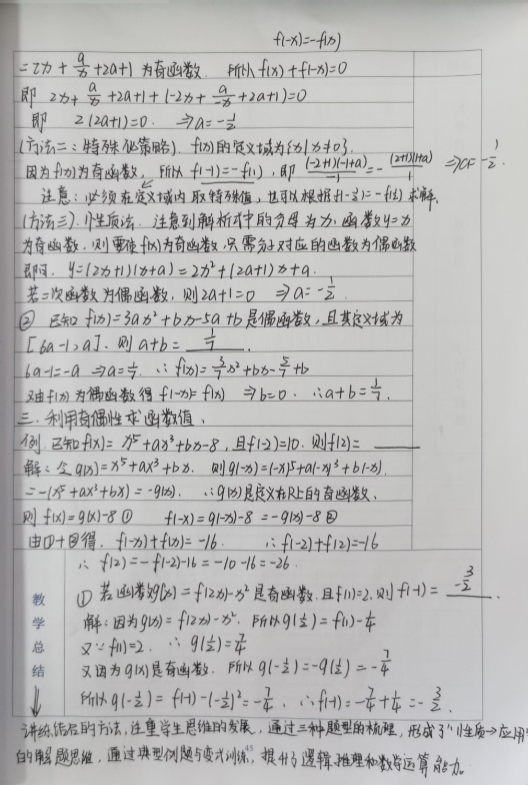 f(-x)=-f(x)
=2x+a/x+2a+1为奇函数. 所以f(x)+f(-x)=0
即 2x+a/x+2a+1+(-2x+a/-x+2a+1)=0
即 2(2a+1)=0. ⇒a=-1/2
(方法二:特殊化策略). f(x)的定义域为{x|x≠0}.
因为f(x)为奇函数, 所以f(-1)=-f(1), 即 (-2+1)(-1+a)/-1=-(2+1)(1+a)/1 ⇒a=-1/2.
注意:必须在定义域内取特殊值,也可以根据f(-1/2)=-f(1/2)求解.
(方法三).性质法. 注意到解析式中的分母为x.函数y=x
为奇函数.则要使f(x)为奇函数,只需分子对应的函数为偶函数
即可. y=(2x+1)(x+a)=2x²+(2a+1)x+a.
若二次函数为偶函数, 则2a+1=0 ⇒a=-1/2.
② 已知f(x)=3ax²+bx-5a+b是偶函数,且其定义域为
[6a-1,a]. 则a+b=1/7
6a-1=-a ⇒a=1/7. ∴f(x)=3/7x²+bx-5/7+b
又由f(x)为偶函数得f(-x)=f(x) ⇒b=0. ∴a+b=1/7.
三.利用奇偶性求函数值.
例.已知f(x)=x⁵+ax³+bx-8,且f(-2)=10.则f(2)=
解:令g(x)=x⁵+ax³+bx. 则g(-x)=(-x)⁵+a(-x)³+b(-x).
=-(x⁵+ax³+bx)=-g(x). ∴g(x)是定义在R上的奇函数.
则f(x)=g(x)-8① f(-x)=g(-x)-8=-g(x)-8②
由①+②得. f(-x)+f(x)=-16. ∴f(-2)+f(2)=-16
∴f(2)=-f(-2)-16=-10-16=-26.
① 若函数g(x)=f(2x)-x²是奇函数.且f(1)=2.则f(-1)=-3/2.
解:因为g(x)=f(2x)-x². 所以g(1/2)=f(1)-1/4
又∵f(1)=2. ∴g(1/2)=7/4
又因为g(x)是奇函数. 所以g(-1/2)=-g(1/2)=-7/4
所以g(-1/2)=f(-1)-(-1/2)²=-7/4. ∴f(-1)=-7/4+1/4=-3/2.
教学总结
讲练结合的方法,注重学生思维的发展,通过三种题型的梳理,形成了"性质→应用"
的解题思维,通过典型例题与变式训练,提升了逻辑推理和数学运算能力.
45